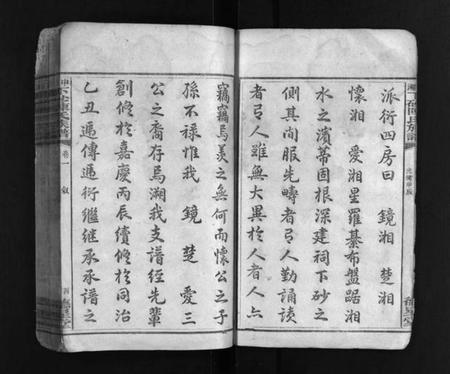 派衍四房曰 鏡湘 楚湘
懷湘 愛湘星羅綦布盤踞湘
水之濱蒂固根深建祠下砂之
側其間服先疇者有人勤誦讀
者有人雖無大異於人者人亦
竊竊焉羨之無何而懷公之子
孫不祿惟我 鏡 楚 愛三
公之裔存焉溯我支譜經先輩
創修於嘉慶丙辰續修於同治
乙丑遞傳遞衍繼繼承承譜之
卷一 敘